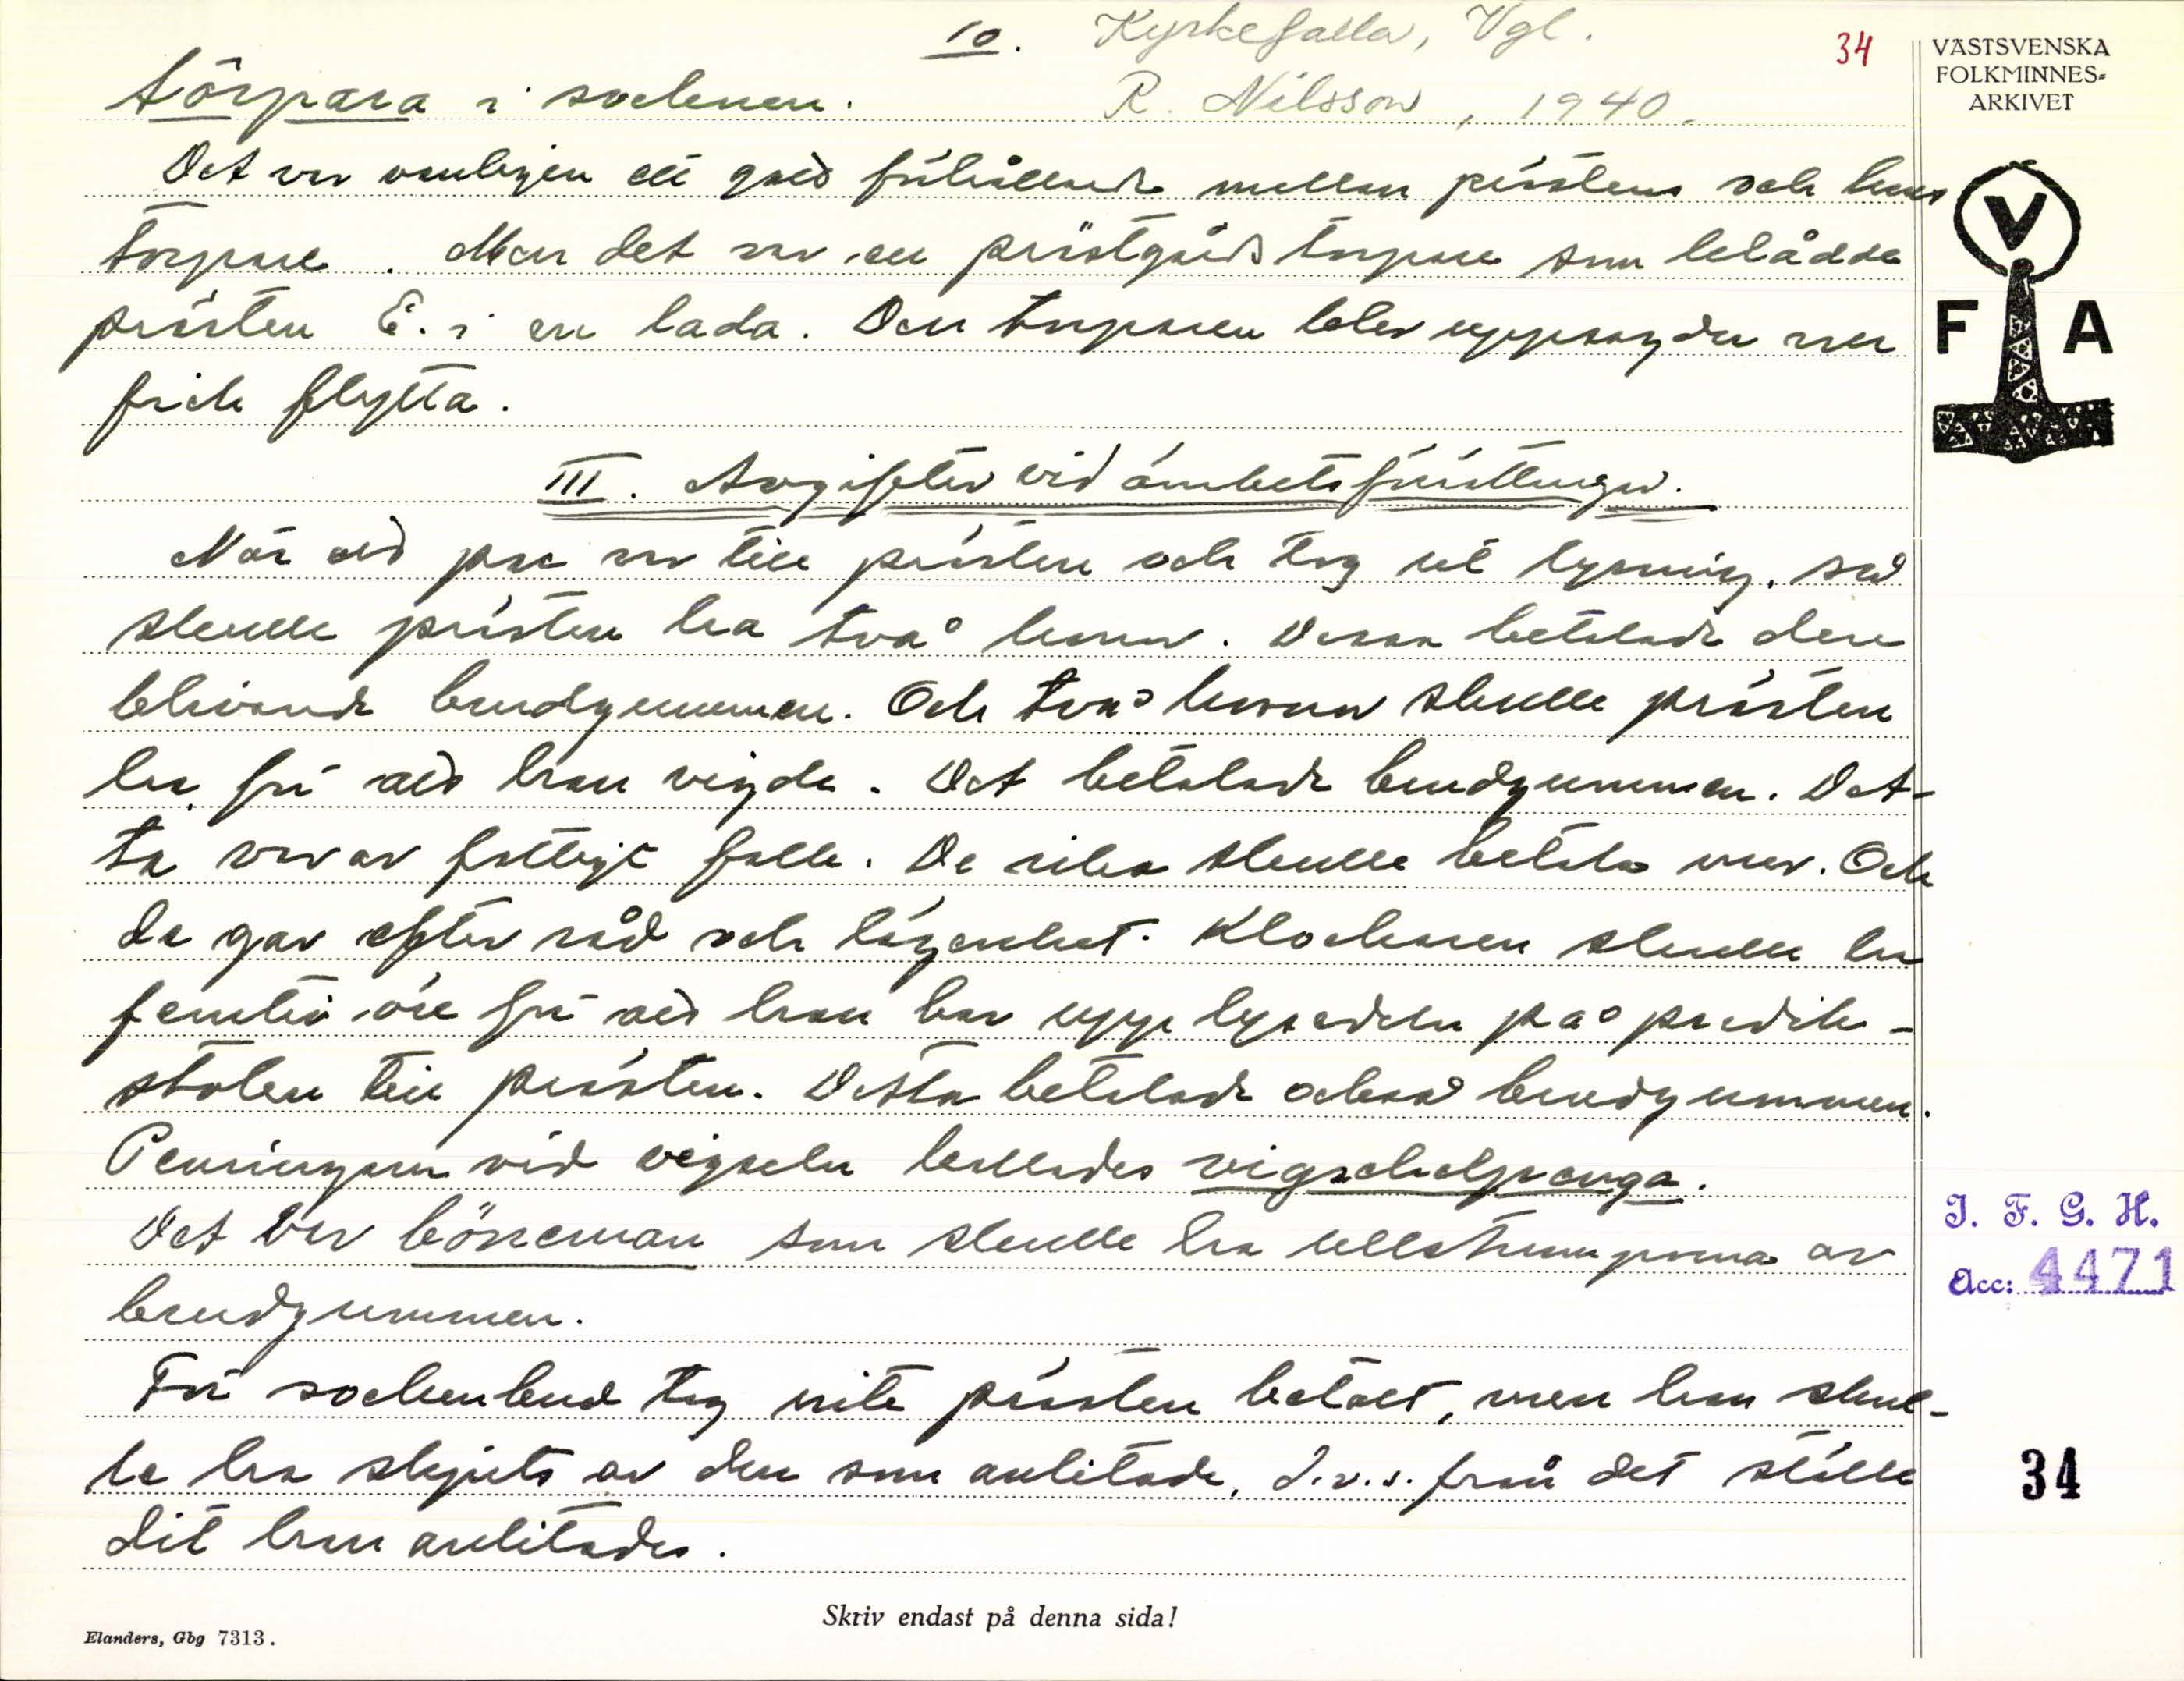 10. Kyrkefalla, Vgl.
34
törpara i socknen.
R. Nilsson, 1940.
Det var vanligen ett gott förhållande mellan prästen och hans
torpare. Men det var en prästgårdstorpare som klådde
prästen E. i en lada. Den torparen blev uppsagder men
fick flytta.
III. Avgifter vid ämbetsförrättningar.
När ett par var till prästen och tog ut lysning, så
skulle prästen ha två kronor. Dessa betalade den
blivande brudgummen. Och två kronor skulle prästen
ha för att han vigde. Det betalade brudgummen. Det-
ta var av fattigt folk. De rika skulle betala mer. Och
de gav efter råd och lägenhet. Klockaren skulle ha
femtio öre för att han bar upp lysedeln på predik-
stolen till prästen. Detta betalade också brudgummen.
Penningarna vid vigseln kallades
Det var böneman som skulle ha ullstrumporna av
brudgummen.
För sockenbud tog inte prästen betalt, men han skul-
le ha skjuts av den som anlitade, d.v.s. från det ställe
dit han anlitades.
Skriv endast på denna sida!
Elanders, Gbg 7313.
VÄSTSVENSKA
FOLKMINNES-
ARKIVET
V
F A
I. F. G. H.
Acc: 4471
34